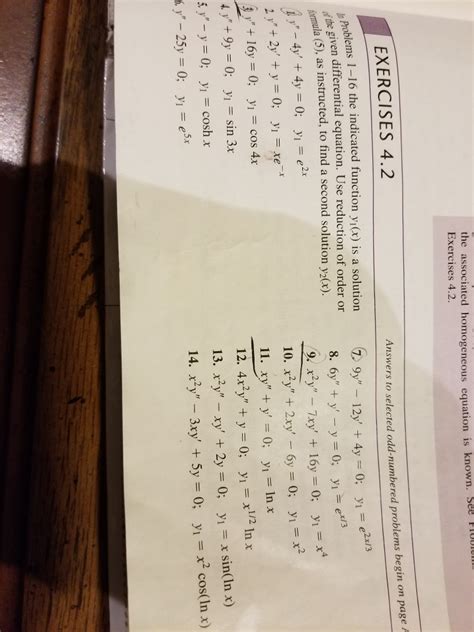 the associated homogeneous equation is known. See
Exercises 4.2.
EXERCISES 4.2
Answers to selected odd-numbered problems begin on page
In Problems 1–16 the indicated function y₁(x) is a solution
of the given differential equation. Use reduction of order or
formula (5), as instructed, to find a second solution y₂(x).
1. y″ − 4y′ + 4y = 0; y₁ = e²ˣ
2. y″ + 2y′ + y = 0; y₁ = xe⁻ˣ
3. y″ + 16y = 0; y₁ = cos 4x
4. y″ + 9y = 0; y₁ = sin 3x
5. y″ − y = 0; y₁ = cosh x
6. y″ − 25y = 0; y₁ = e⁵ˣ
7. 9y″ − 12y′ + 4y = 0; y₁ = e²ˣ/³
8. 6y″ + y′ − y = 0; y₁ = eˣ/³
9. x²y″ − 7xy′ + 16y = 0; y₁ = x⁴
10. x²y″ + 2xy′ − 6y = 0; y₁ = x²
11. xy″ + y′ = 0; y₁ = ln x
12. 4x²y″ + y = 0; y₁ = x¹/² ln x
13. x²y″ − xy′ + 2y = 0; y₁ = x sin(ln x)
14. x²y″ − 3xy′ + 5y = 0; y₁ = x² cos(ln x)